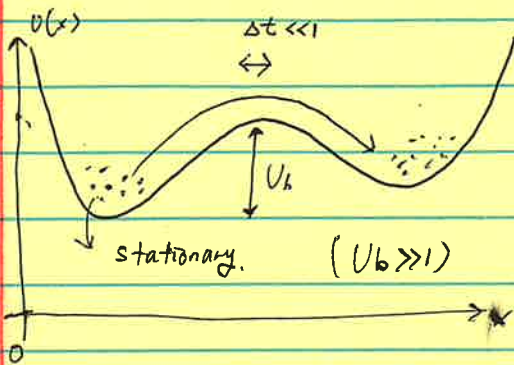 U(x)
Δt <<1
U_b
stationary. (U_b >>1)
x
0